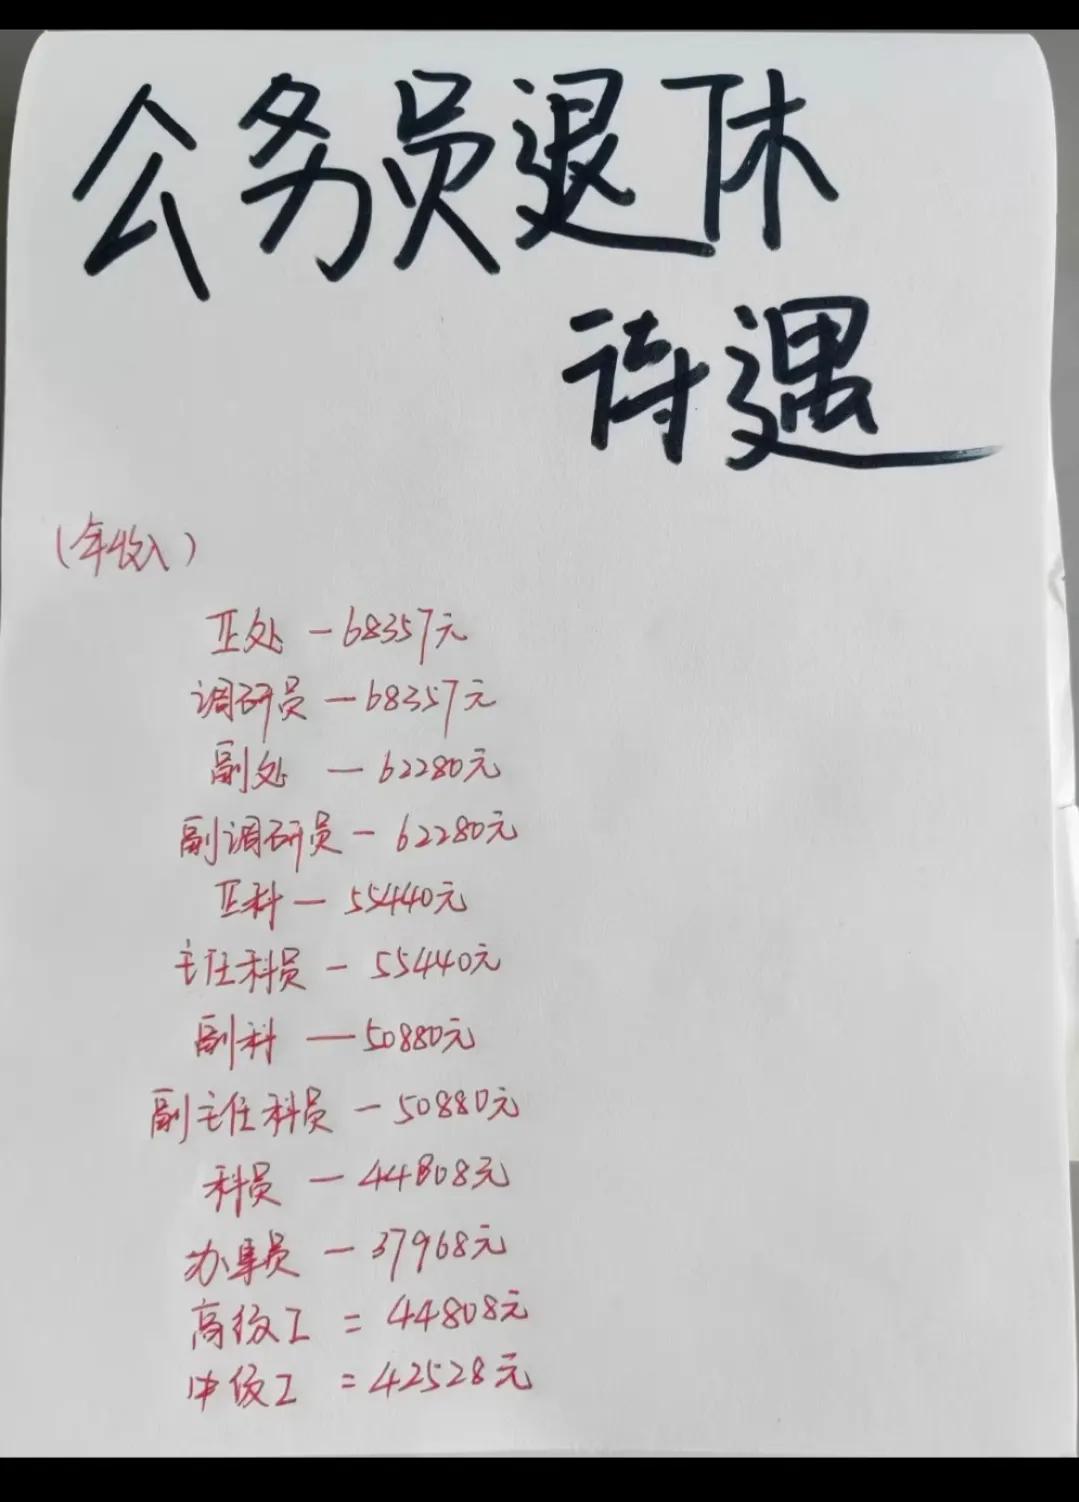 公务员退休
待遇
(年收入)
正处 — 68357元
调研员 — 68357元
副处 — 62280元
副调研员 — 62280元
正科 — 55440元
主任科员 — 55440元
副科 — 50880元
副主任科员 — 50880元
科员 — 44808元
办事员 — 37968元
高级工 = 44808元
中级工 = 42528元